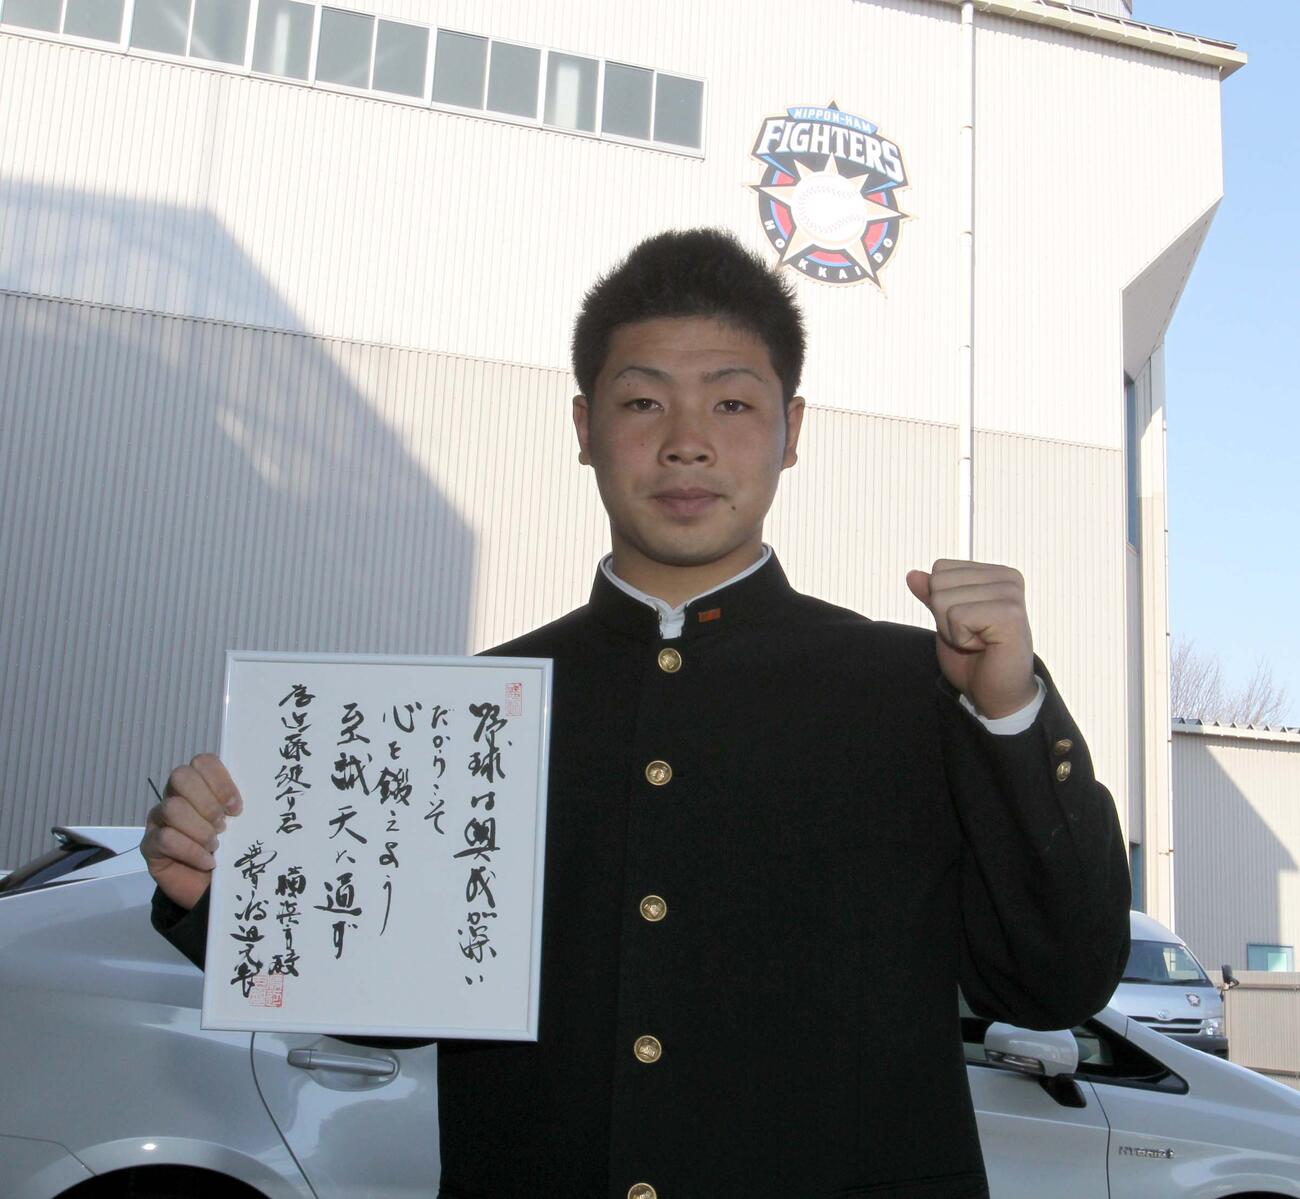 NIPPON-HAM
FIGHTERS
HOKKAIDO
野球は奥が深い
だからこそ
心を鍛えよう
至誠天に通ず
近藤健介君
横浜高校
渡辺元智
HYBRID